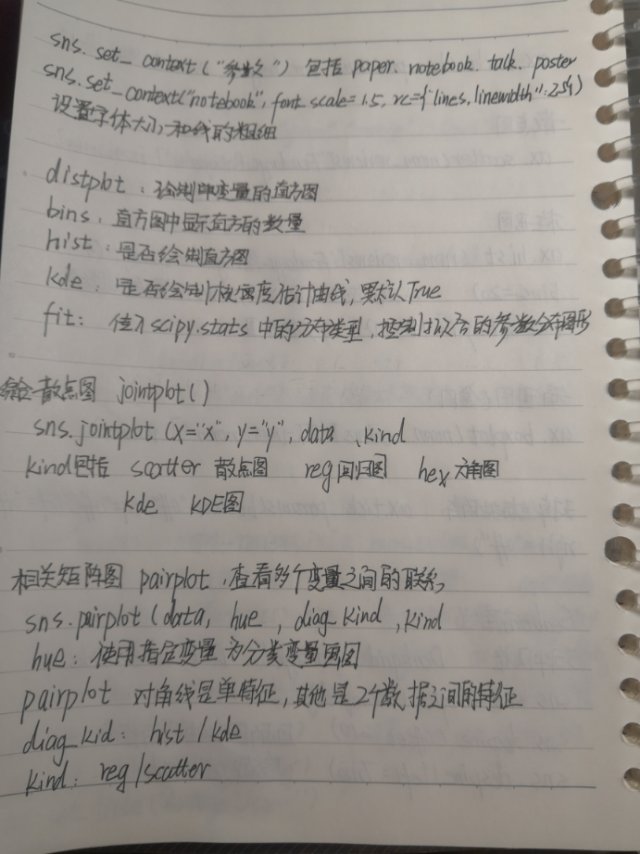 sns. set_ context ("参数") 包括 paper. notebook. talk. poster
sns. set_context("notebook", font_scale=1.5, rc={"lines.linewidth":2.5})
设置字体大小和线的粗细
distplot：绘制单变量的直方图
bins：直方图中显示直方的数量
hist：是否绘制直方图
kde：是否绘制核密度估计曲线，默认True
fit：传入scipy.stats 中的分布类型，控制拟合的参数分布图形
综合散点图 jointplot()
sns.jointplot (x="x", y="y", data , kind
kind包括 scatter 散点图 reg回归图 hex六角图
kde KDE图
相关矩阵图 pairplot，查看多个变量之间的联系
sns.pairplot (data, hue , diag_kind , kind
hue：使用指定变量为分类变量画图
pairplot 对角线是单特征，其他是2个数据之间的特征
diag_kid：hist / kde
kind：reg / scatter